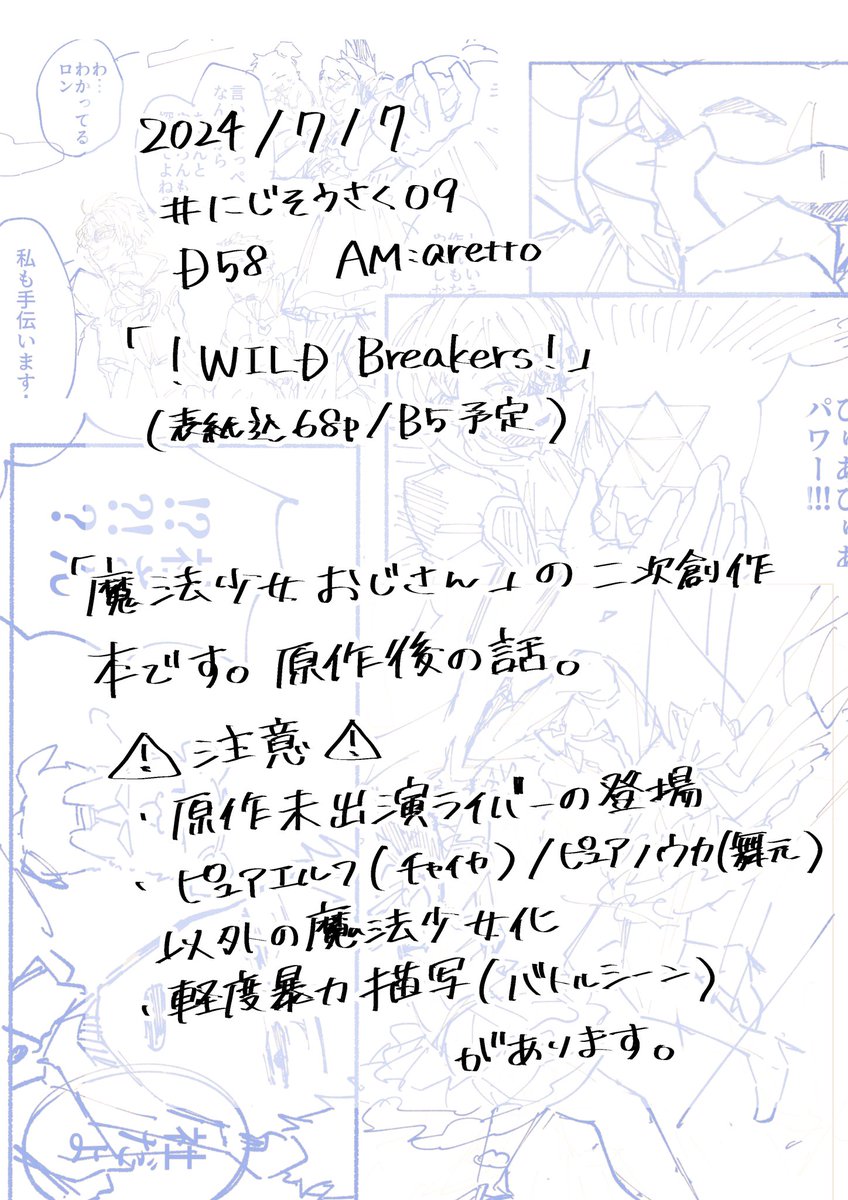 2024/7/7
#にじそうさく09
D58 AM:aretto
「!WILD Breakers!」
(表紙込68p/B5予定)
「魔法少女おじさん」の二次創作
本です。原作後の話。
⚠注意⚠
・原作未出演ライバーの登場
・ピュアエルフ(チャイカ)/ピュアノウカ(舞元)
以外の魔法少女化
・軽度暴力描写(バトルシーン)
があります。
わ…
わかってる
ロン
私も手伝います.
ぴゅあぴゅあ
パワー!!!